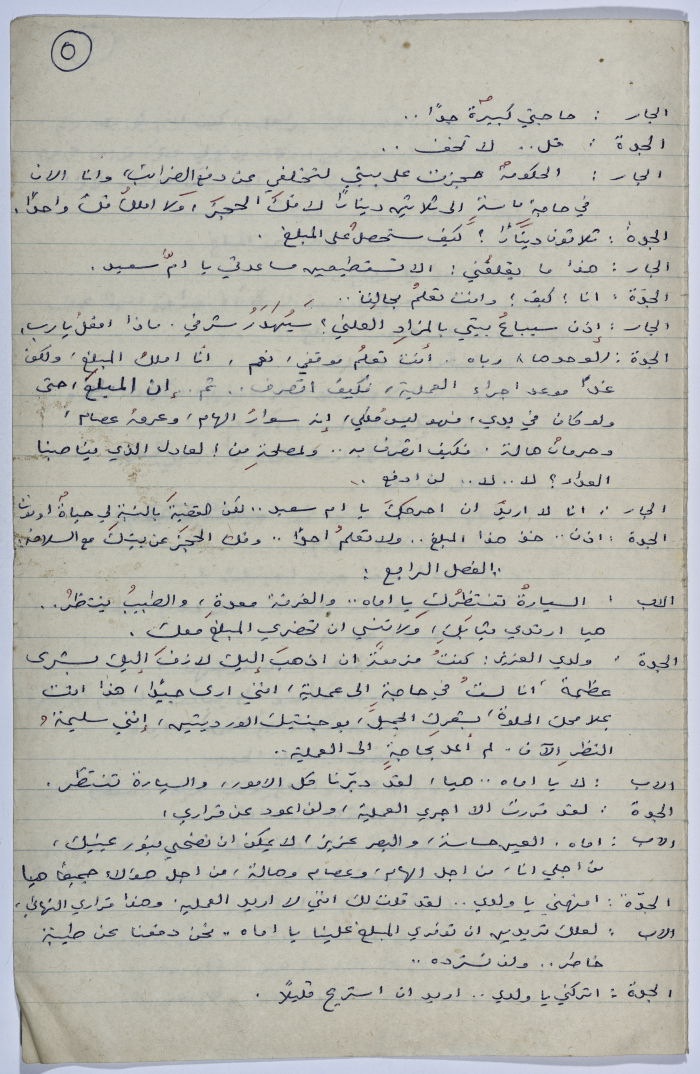 ٥
الجار : حاجتي كبيرةٌ جدًا ..
الجدة : قل .. لا تخف ..
الجار : الحكومةُ حجزت على بيتي لتخلفي عن دفع الضرائب، وانا الان
في حاجةٍ ماسةٍ إلى ثلاثين دينارًا لافكَّ الحجزَ، ولا املكُ فلسًا واحدًا.
الجدةُ : ثلاثون دينارًا ؟ كيف ستحصلُ على المبلغ .
الجار : هذا ما يقلقُني ! الا تستطيعين مساعدتي يا امَّ سعيد .
الجدّة : انا ! كيف ؟ وانت تعلمُ بحالنا ..
الجار : إذن سيباعُ بيتي بالمزادِ العلني ؟ سَيُهْدَرُ شرفي . ماذا افعلُ يا رب
الجدة : (لوحدها) رباه . أنت تعلمُ موقفي، نعم ، انا املكُ المبلغ، ولكن
غدًا موعد اجراء العملية، فكيف اتصرف .. ثم .. إن المبلغَ، حتى
ولو كان في يدي، فهو ليس مُلكي، إنه سوارُ الهام، وعرقُ عصام،
وحرمانُ هالة . فكيف اتصرف به .. ولمصلحةِ من ! لعادل الذي يناصبنا
العداء ؟ لا .. لا .. لن ادفع ..
الجار : انا لا اريدُ ان احرجكِ يا ام سعيد .. لكن القضيةَ بالنسبة لي حياةٌ او موت
الجدة : اذن .. خذ هذا المبلغ .. ولا تعلمْ احدًا .. وفك الحجزَ عن بيتك مع السلامة.
الفصل الرابع :
الاب : السيارةُ تنتظرُكِ يا اماه .. والغرفة معدة ، والطبيبُ ينتظرُ ..
هيا ارتدي ثيابَكِ، ولا تنسي انْ تحضري المبلغ معك .
الجدة : ولدي العزيز : كنتُ مزمعةً ان اذهبَ إليك لازفَ إليك بشرى
عظيمة ، انا لستُ في حاجةٍ إلى عملية، انني ارى جيدًا، هذا انت
بملامحك الحلوة، بشعرك الجميل، بوجنتيك الورديتين، إنني سليمة
النظرِ الآن . لم أعد بحاجةٍ الى العملية ..
الاب : لا يا اماه .. هيا، لقد دبّرنا كل الامور، والسيارة تنتظر .
الجدة : لقد قررت الا اجري العملية، ولن اعود عن قراري،
الاب : اماه . العين حساسة، والبصر عزيز، لا يمكن ان تضحي بنور عينيك،
من اجلي انا، من اجل الهام، وعصام وهالة، من اجل هؤلاء جميعًا هيا
الجدّة : افهمني يا ولدي .. لقد قلت لك انني لا اريد العملية. وهذا قراري النهائي.
الاب : لعلك تريدين ان توفري المبلغ علينا يا اماه .. نحن دفعنا عن طيبة
خاطر .. ولن نسترده ..
الجدة : اتركني يا ولدي .. اريد ان استريح قليلًا .